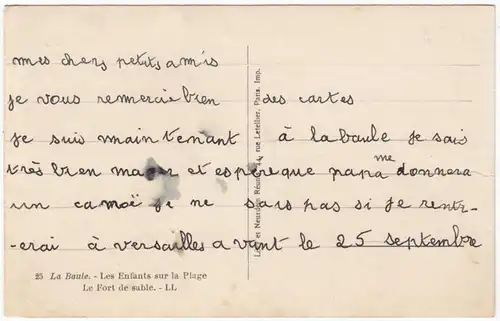 mes chers petits amis
je vous remercie bien des cartes
je suis maintenant à labaule je sais
très bien nager et espère que papa me donnera
un canoë je ne sais pas si je rentr-
-erai à versailles avant le 25 septembre
25 La Baule. - Les Enfants sur la Plage
Le Fort de sable. - LL
et Neurdein Réunis, 44, rue Letellier, Paris. Imp.